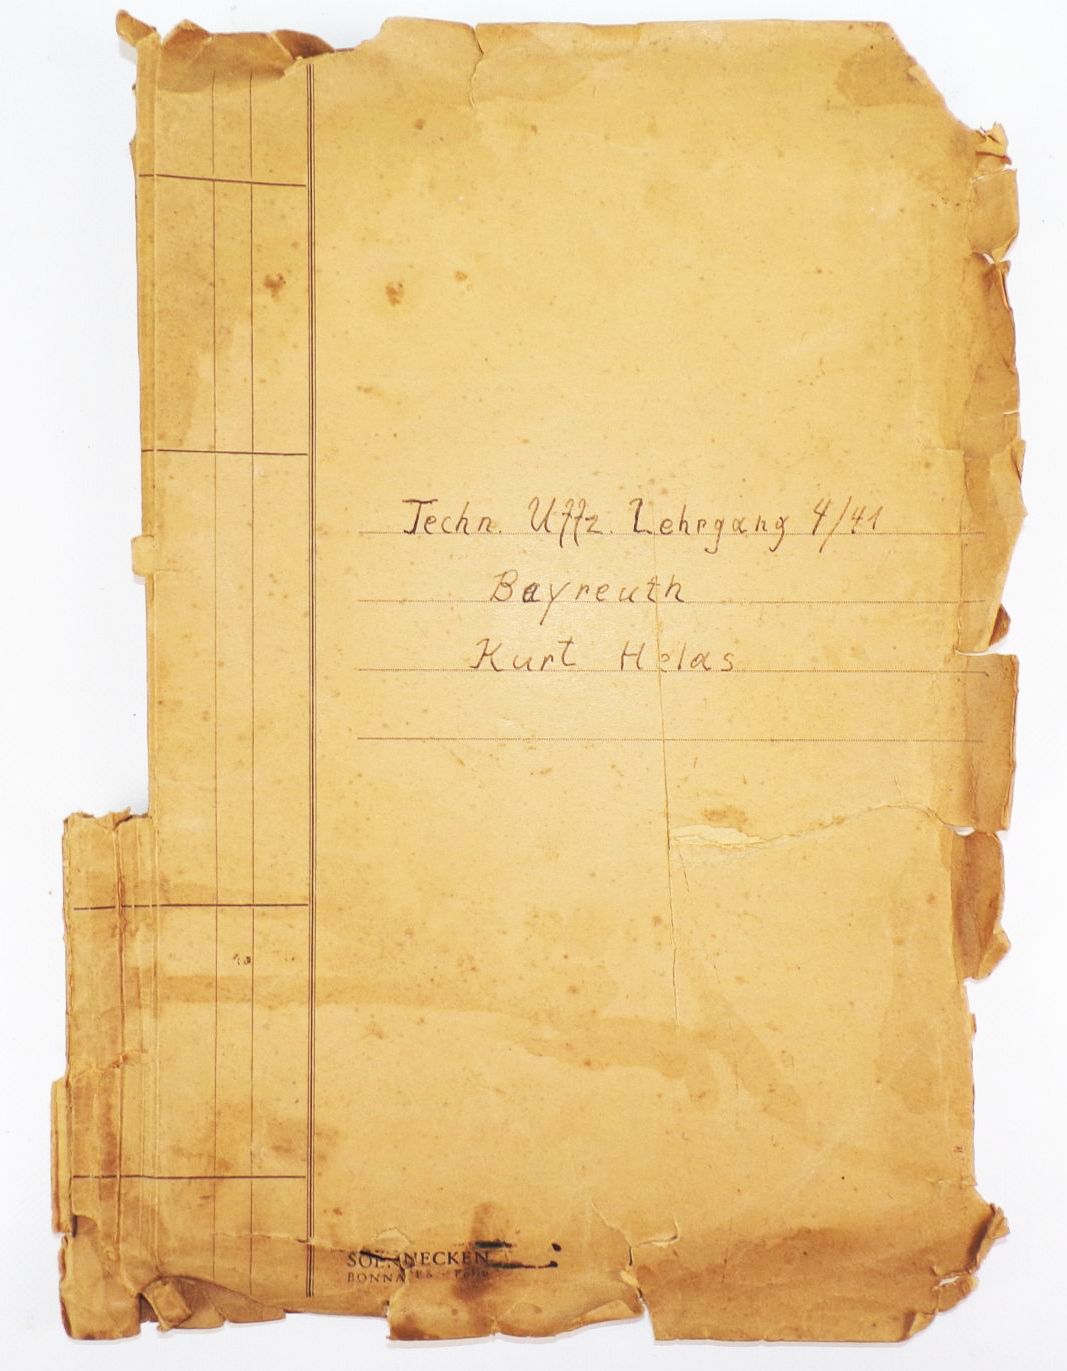 Techn. Uffz. Lehrgang 4/41
Bayreuth
Kurt Helas
SOENNECKEN
BONN